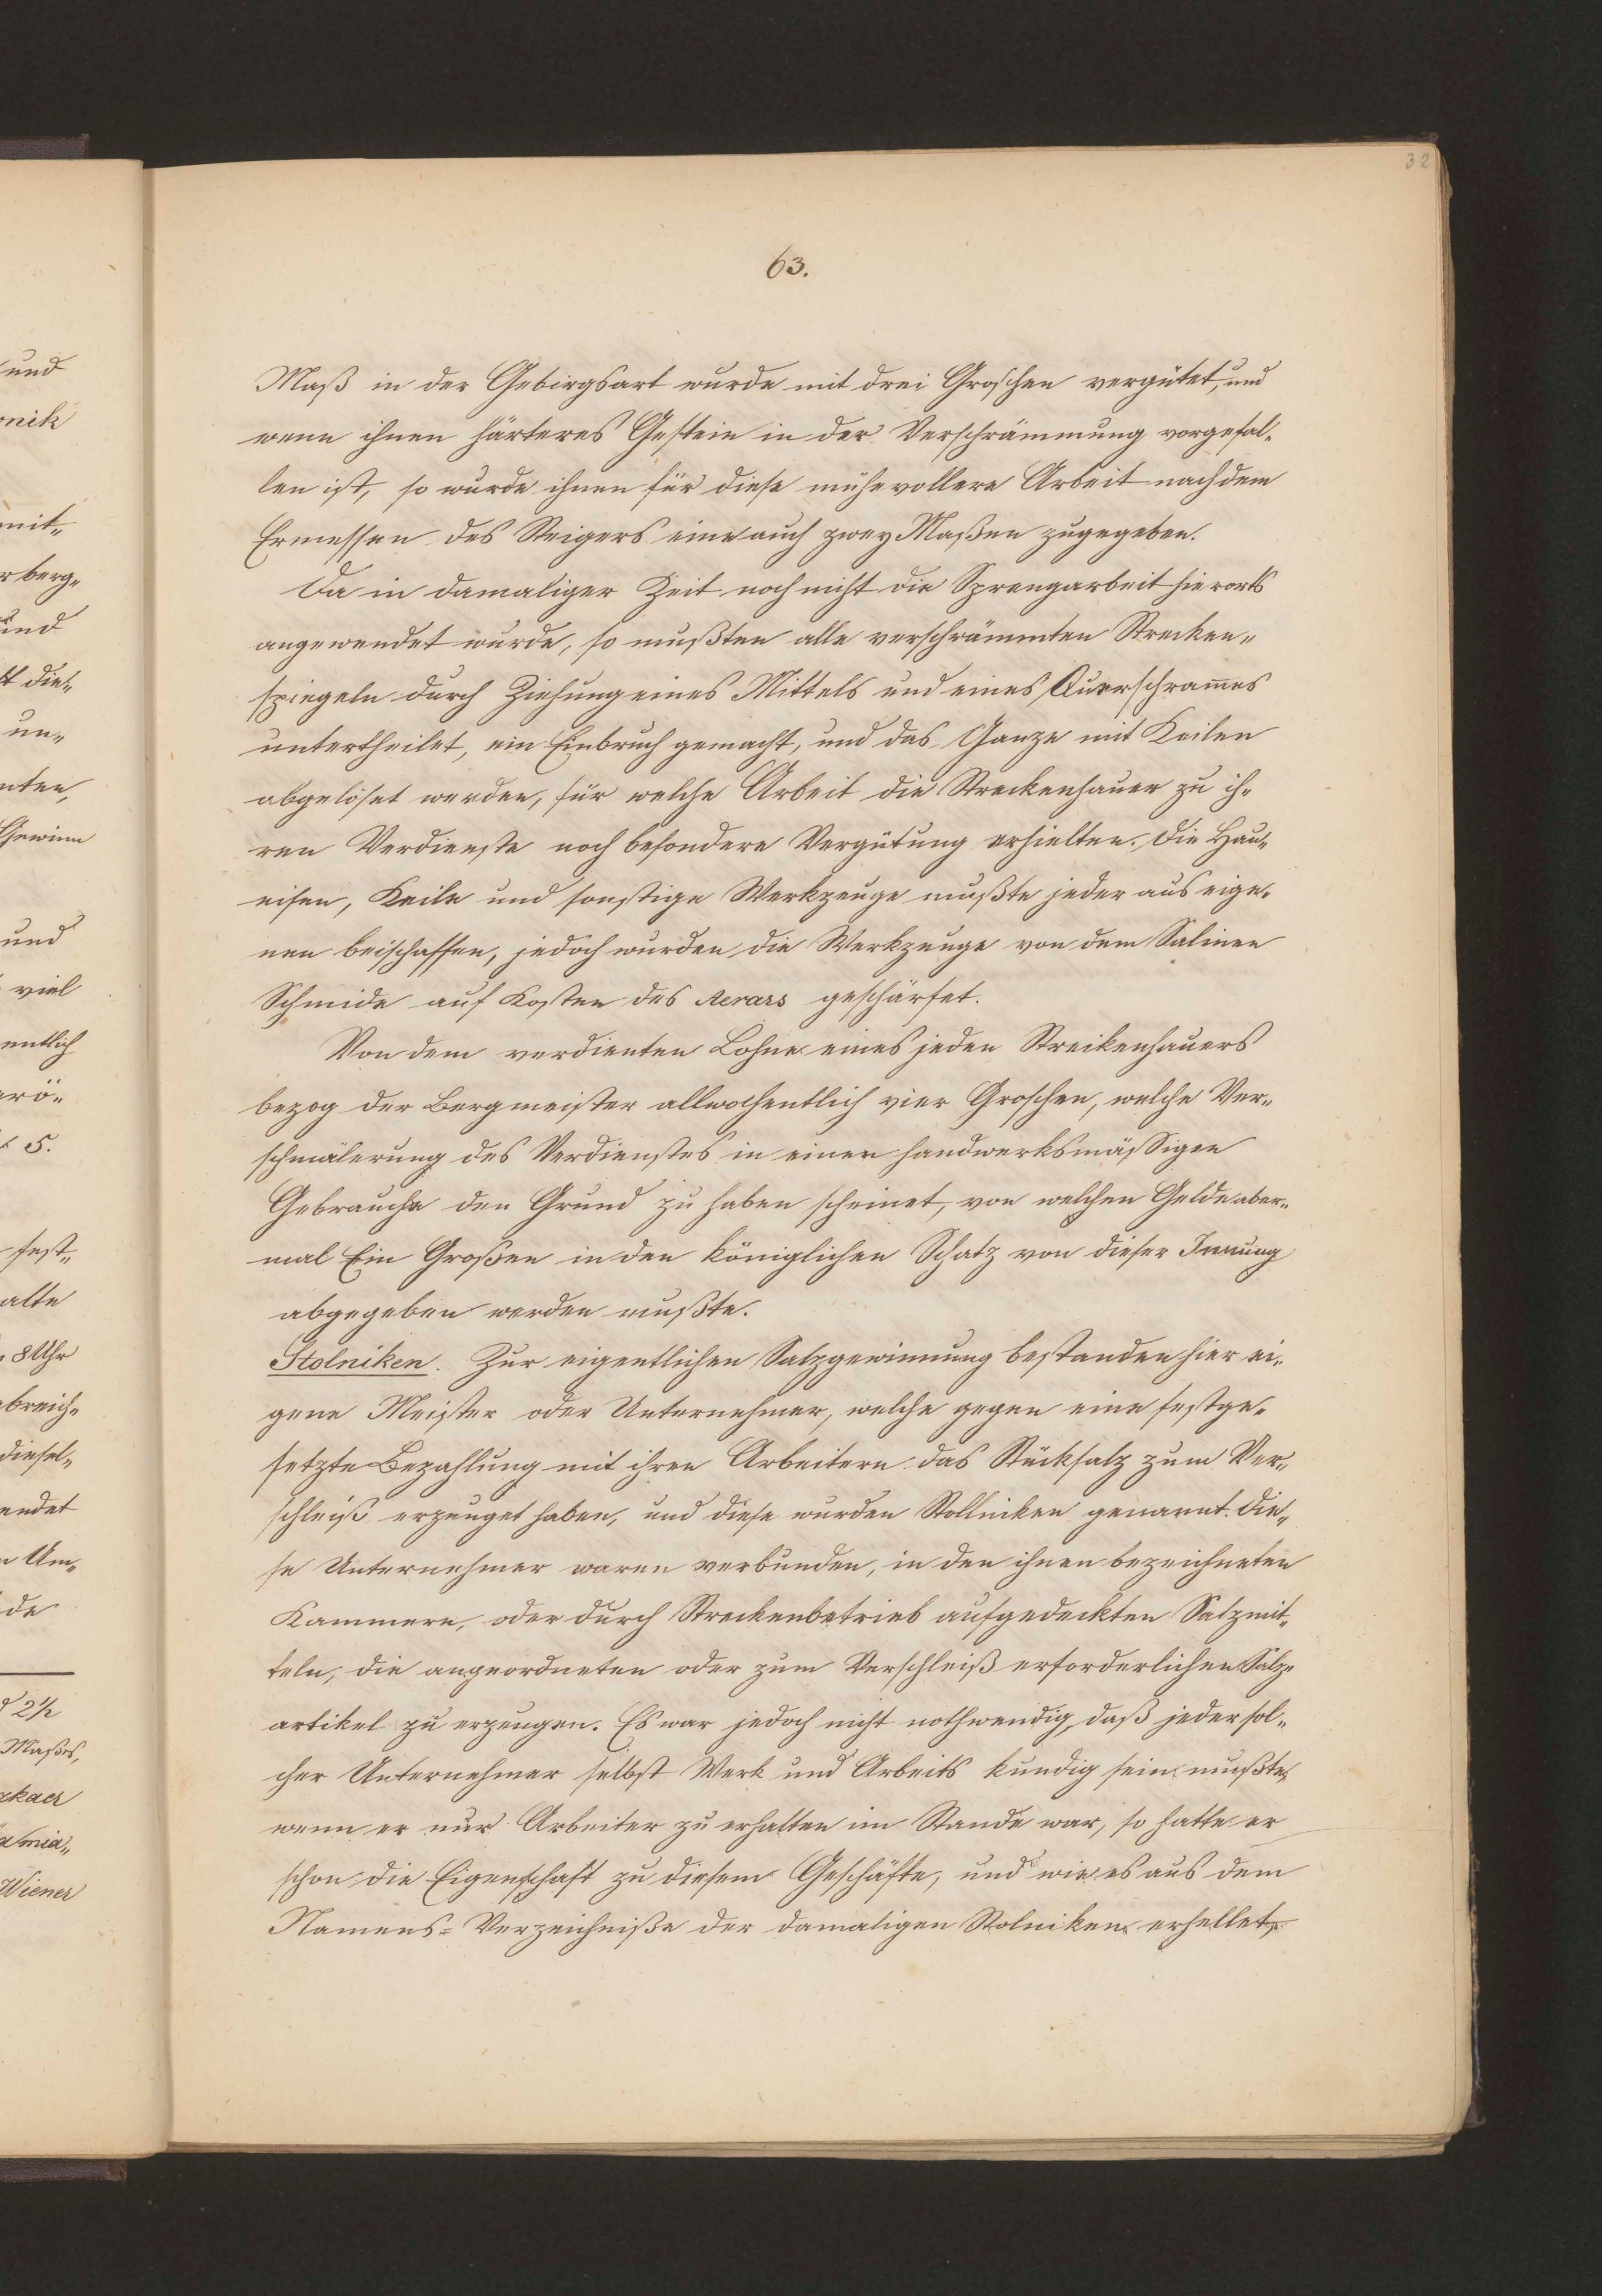 32
63.
Maß in der Gebirgsart wurde mit drei Groschen vergütet, und
wenn ihnen härteres Gestein in der Verschrämmung vorgefal-
len ist, so wurde ihnen für diese mühevollere Arbeit nach dem
Ermessen des Steigers eine auch zwey Maßen zugegeben.
Da in damaliger Zeit noch nicht die Sprengarbeit hierorts
angewendet wurde, so mußten alle verschrämmten Strecken-
spiegeln durch Ziehung eines Mittels und eines Querschrames
untertheilet, ein Einbruch gemacht, und das Ganze mit Keilen
abgelöset werden, für welche Arbeit die Streckenhauer zu ih-
ren Verdienste noch besondere Vergütung erhielten. Die Hau-
eisen, Keile und sonstige Werkzeuge mußte jeder aus eige-
nen beischaffen, jedoch wurden die Werkzeuge von dem Salinen
Schmide auf Kosten des Aerars geschärfet.
Von dem verdienten Lohne eines jeden Streikenhauers
bezog der Bergmeister allwochentlich vier Groschen, welche Ver-
schmälerung des Verdienstes in einen handwerksmässigen
Gebrauche den Grund zu haben scheinet, von welchen Gelde aber-
mal Ein Großen in den königlichen Schatz von dieser Innung
abgegeben werden mußte.
Stolniken. Zur eigentlichen Salzgewinnung bestanden hier ei-
gene Meister oder Unternehmer, welche gegen eine festge-
setzte Bezahlung mit ihren Arbeitern das Stücksalz zum Ver-
schleiß erzeuget haben, und diese wurden Stollniken genannt. Die-
se Unternehmer waren verbunden, in den ihnen bezeichneten
Kammern, oder durch Streckenbetrieb aufgedeckten Salzmit-
teln, die angeordneten oder zum Verschleiß erforderlichen Salz-
artikel zu erzeugen. Es war jedoch nicht nothwendig, daß jeder sol-
cher Unternehmer selbst Werk und Arbeits kundig sein mußte,
wenn er nur Arbeiter zu erhalten im Stande war, so hatte er
schon die Eigenschaft zu diesem Geschäfte, und wie es aus dem
Namens-Verzeichniße der damaligen Stolniken erhellet,